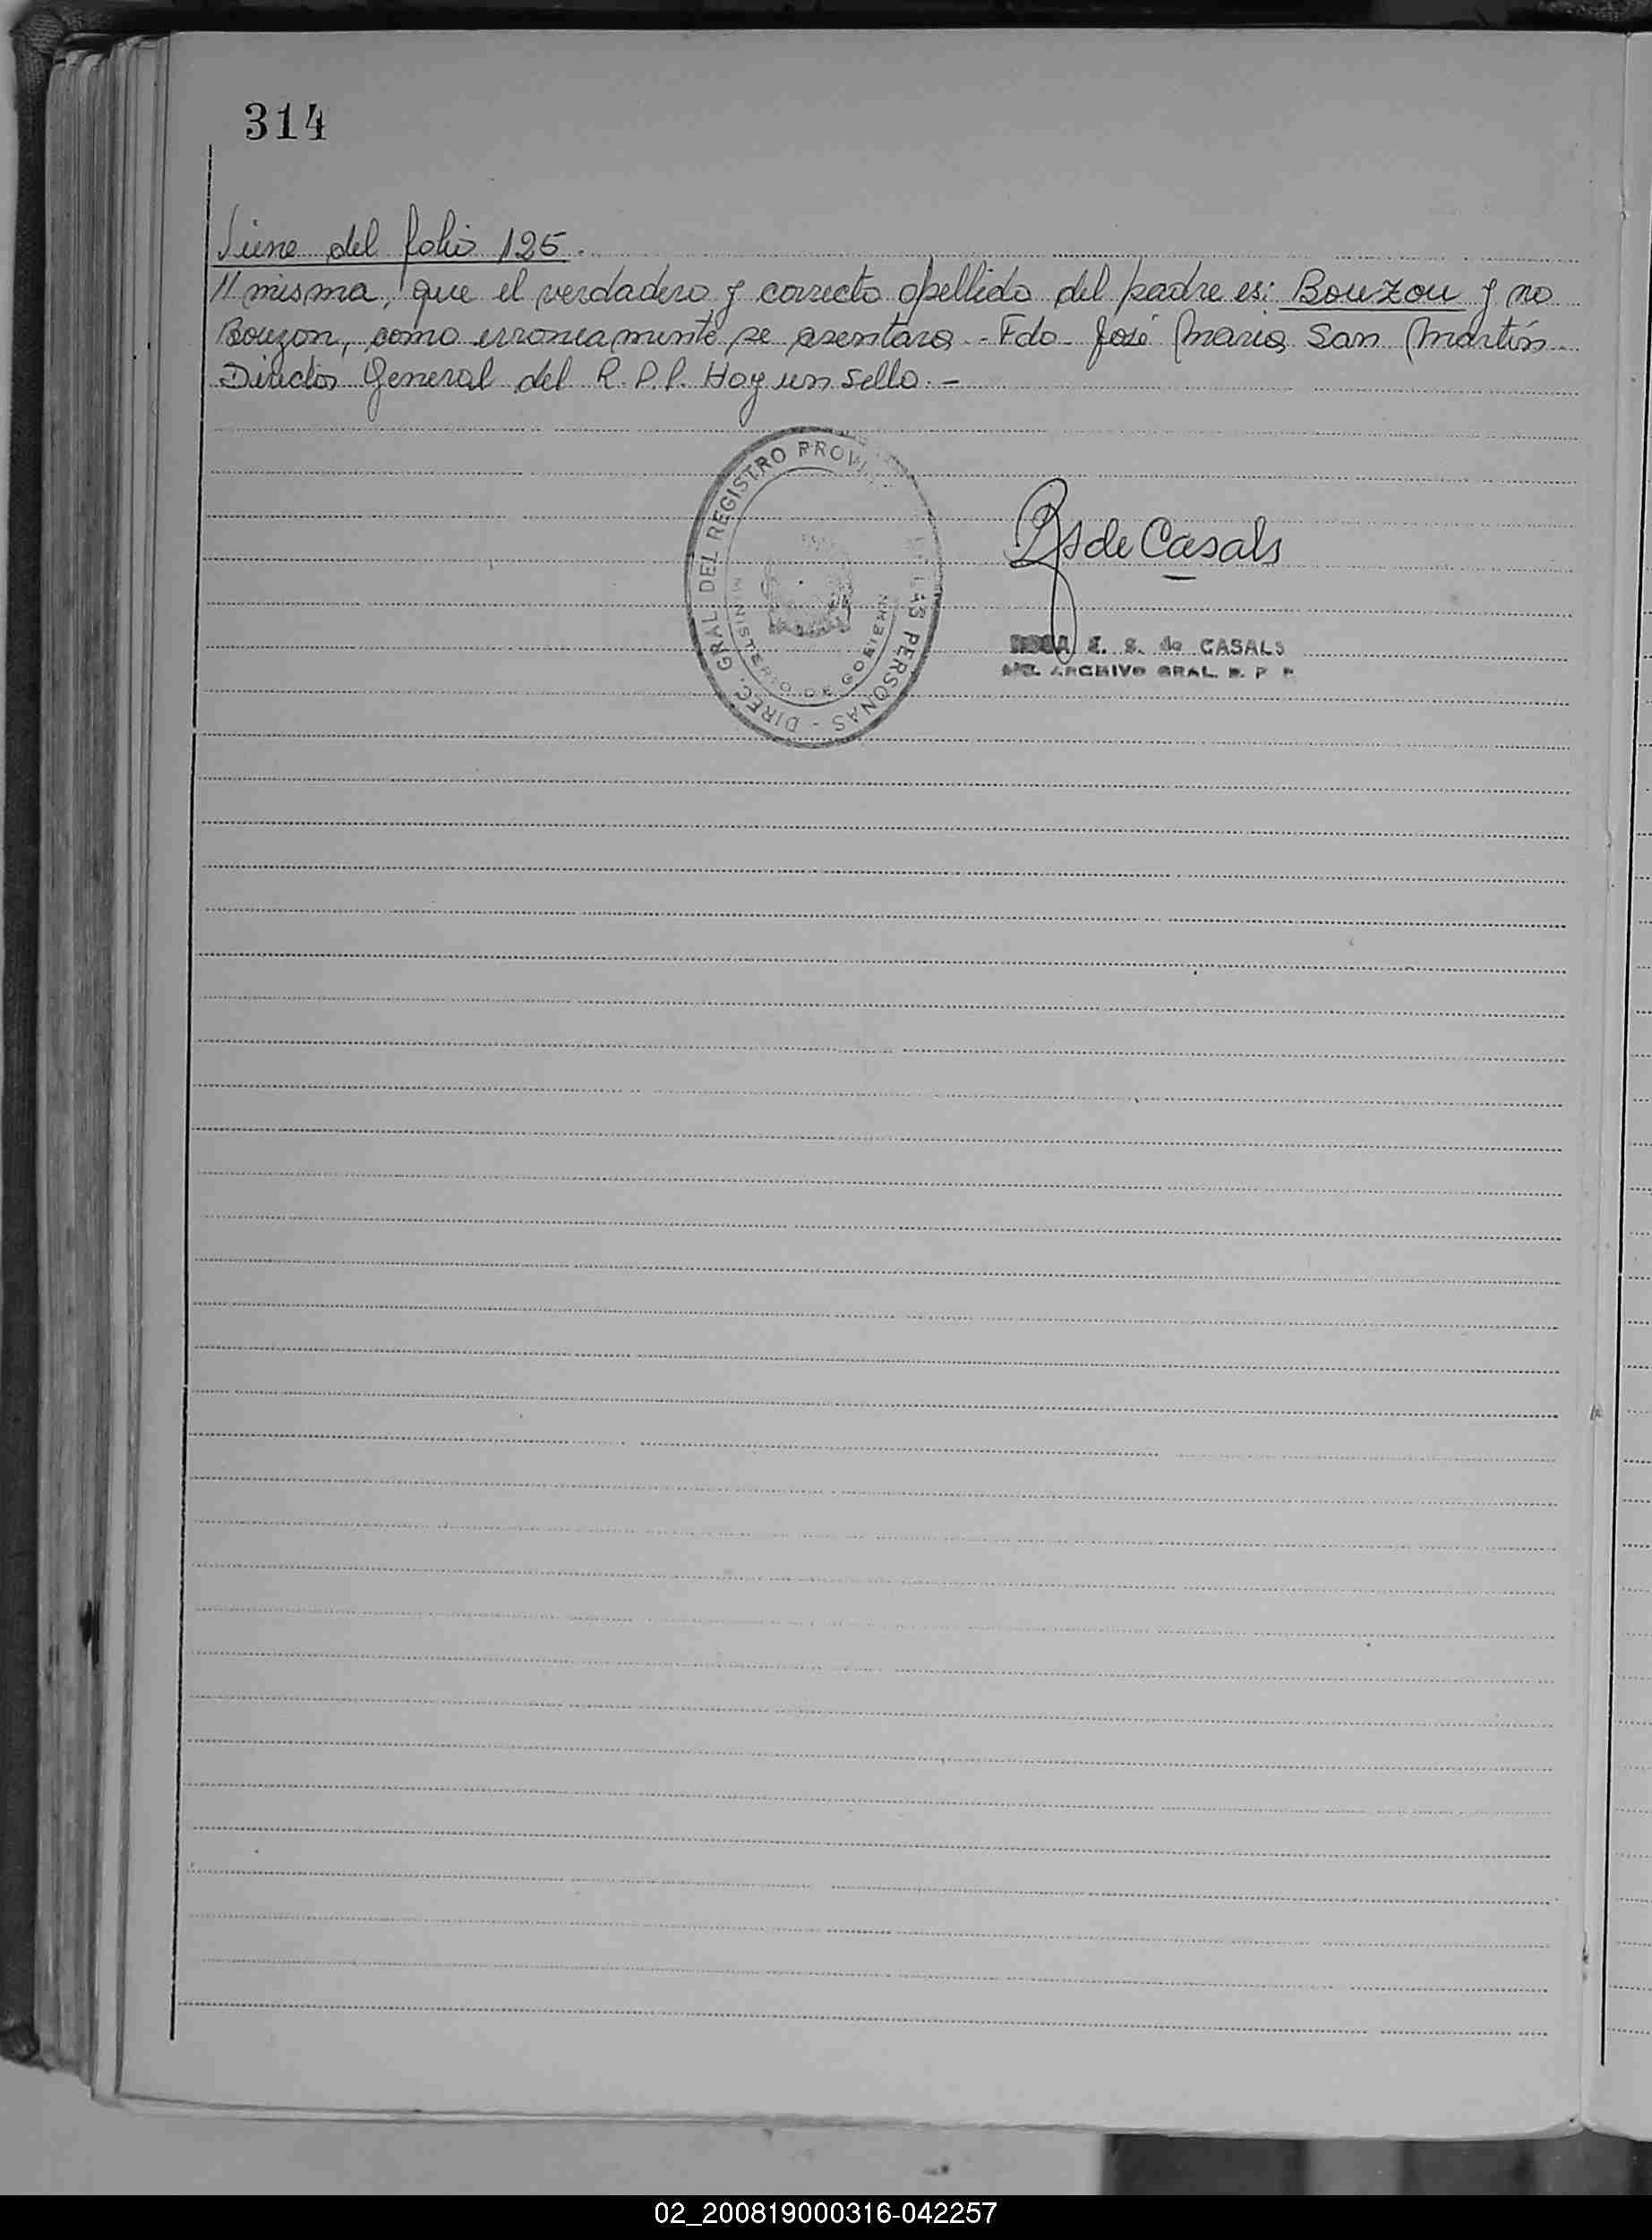 314
Viene del folio 125.
// misma, que el verdadero y correcto apellido del padre es: Bouzou y no
Bouzon, como erroneamente se asentara.- Fdo- José Maria San Martín
Director General del R.P.P. Hay un sello.-
DIREC. GRAL. DEL REGISTRO PROVI LAS PERSONAS -
MINISTERIO DE GOBIERN
Rs de Casals
E. S. de CASALS
ARCHIVO GRAL. R. P. P.
02_200819000316-042257